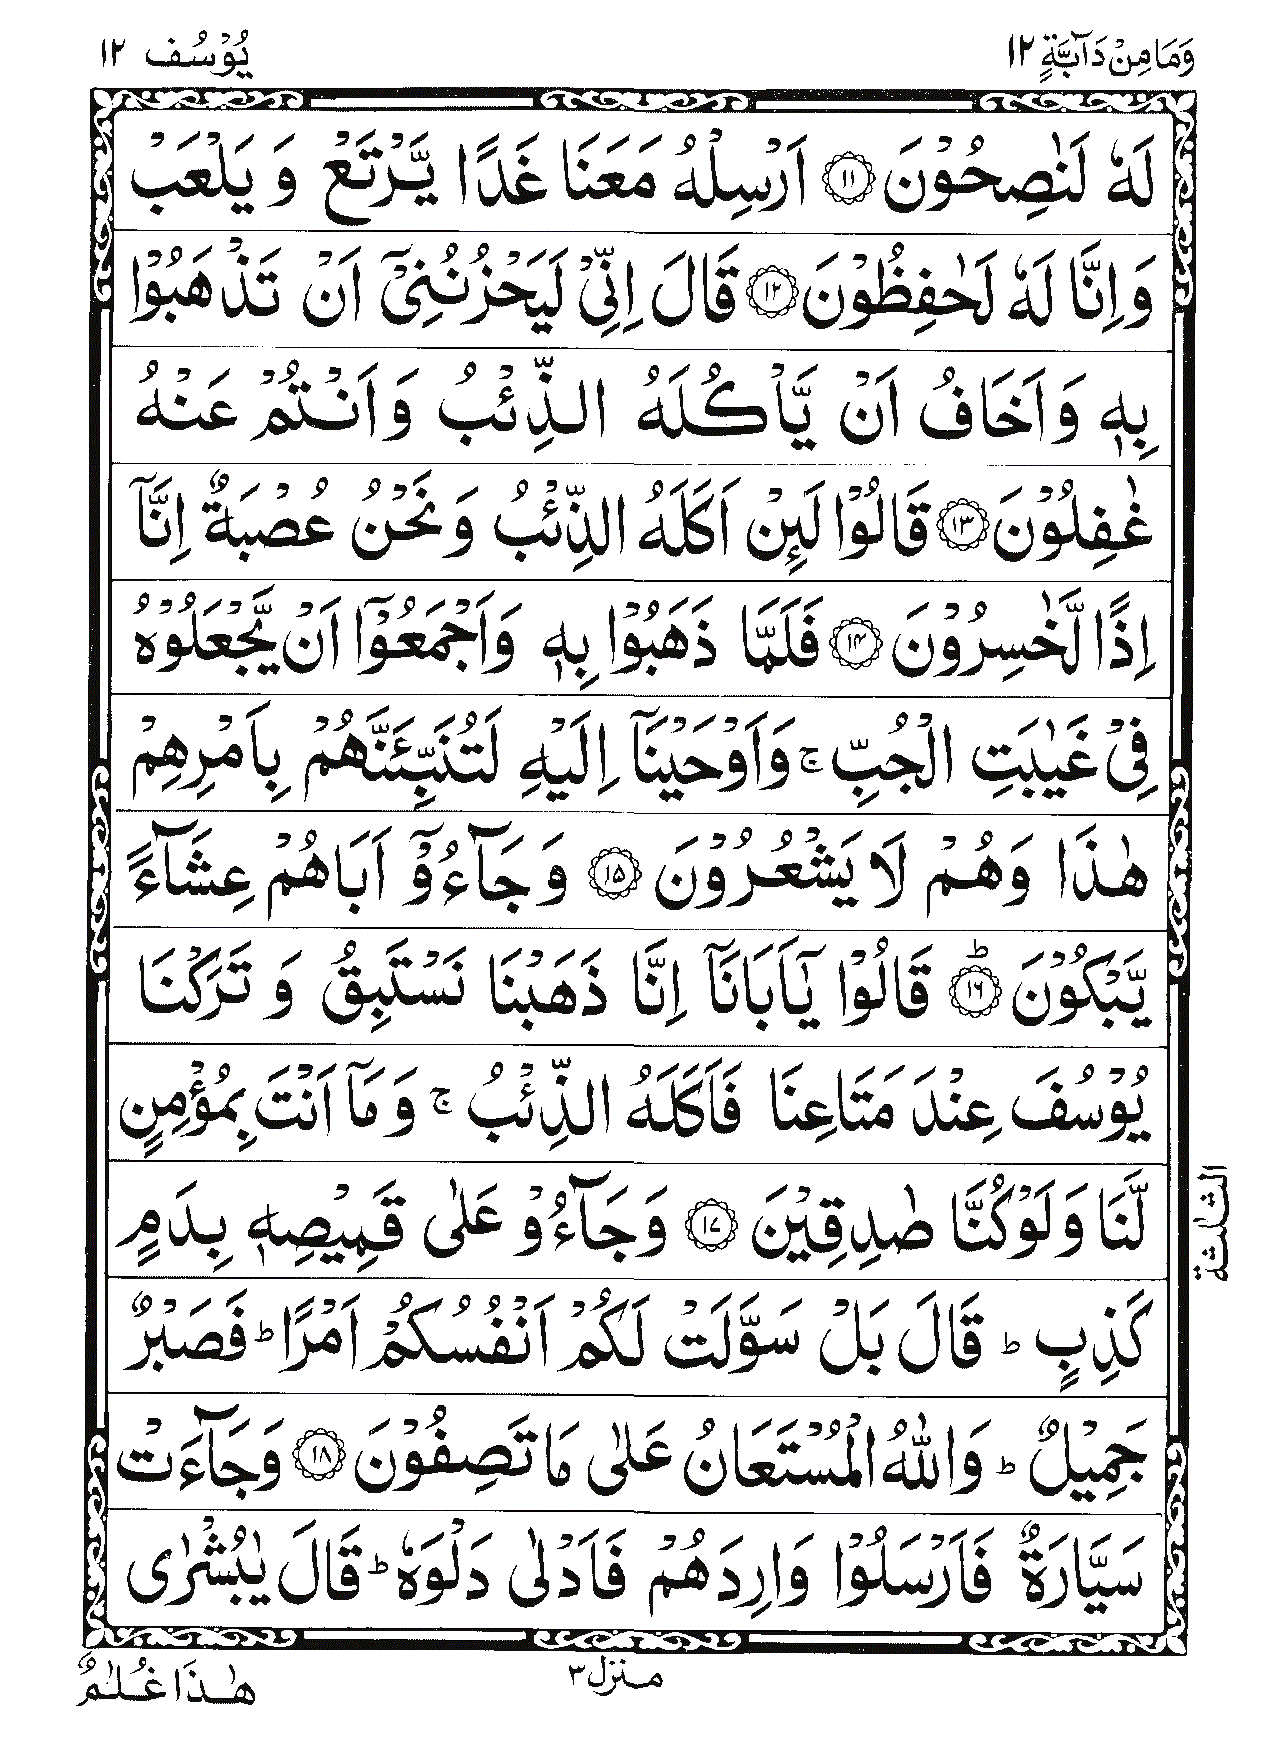 وَمَا مِنْ دَآبَّةٍ ١٢
يُوْسُف ١٢
لَهٗ لَنٰصِحُوْنَ ۝١١ اَرْسِلْهُ مَعَنَا غَدًا يَّرْتَعْ وَ يَلْعَبْ
وَاِنَّا لَهٗ لَحٰفِظُوْنَ ۝١٢ قَالَ اِنِّيْ لَيَحْزُنُنِيْٓ اَنْ تَذْهَبُوْا
بِهٖ وَاَخَافُ اَنْ يَّاْكُلَهُ الذِّئْبُ وَاَنْتُمْ عَنْهُ
غٰفِلُوْنَ ۝١٣ قَالُوْا لَئِنْ اَكَلَهُ الذِّئْبُ وَنَحْنُ عُصْبَةٌ اِنَّآ
اِذًا لَّخٰسِرُوْنَ ۝١٤ فَلَمَّا ذَهَبُوْا بِهٖ وَاَجْمَعُوْٓا اَنْ يَّجْعَلُوْهُ
فِيْ غَيٰبَتِ الْجُبِّ ۚ وَاَوْحَيْنَآ اِلَيْهِ لَتُنَبِّئَنَّهُمْ بِاَمْرِهِمْ
هٰذَا وَهُمْ لَا يَشْعُرُوْنَ ۝١٥ وَجَآءُوْٓ اَبَاهُمْ عِشَآءً
يَّبْكُوْنَ ۝١٦ؕ قَالُوْا يٰٓاَبَانَآ اِنَّا ذَهَبْنَا نَسْتَبِقُ وَ تَرَكْنَا
يُوْسُفَ عِنْدَ مَتَاعِنَا فَاَكَلَهُ الذِّئْبُ ۚ وَمَآ اَنْتَ بِمُؤْمِنٍ
لَّنَا وَلَوْ كُنَّا صٰدِقِيْنَ ۝١٧ وَجَآءُوْ عَلٰى قَمِيْصِهٖ بِدَمٍ
كَذِبٍ ؕ قَالَ بَلْ سَوَّلَتْ لَكُمْ اَنْفُسُكُمْ اَمْرًا ؕ فَصَبْرٌ
جَمِيْلٌ ؕ وَاللّٰهُ الْمُسْتَعَانُ عَلٰى مَا تَصِفُوْنَ ۝١٨ وَجَآءَتْ
سَيَّارَةٌ فَاَرْسَلُوْا وَارِدَهُمْ فَاَدْلٰى دَلْوَهٗ ؕ قَالَ يٰبُشْرٰى
الثلٰثة
منزل ٣
هٰذَا غُلٰمٌ